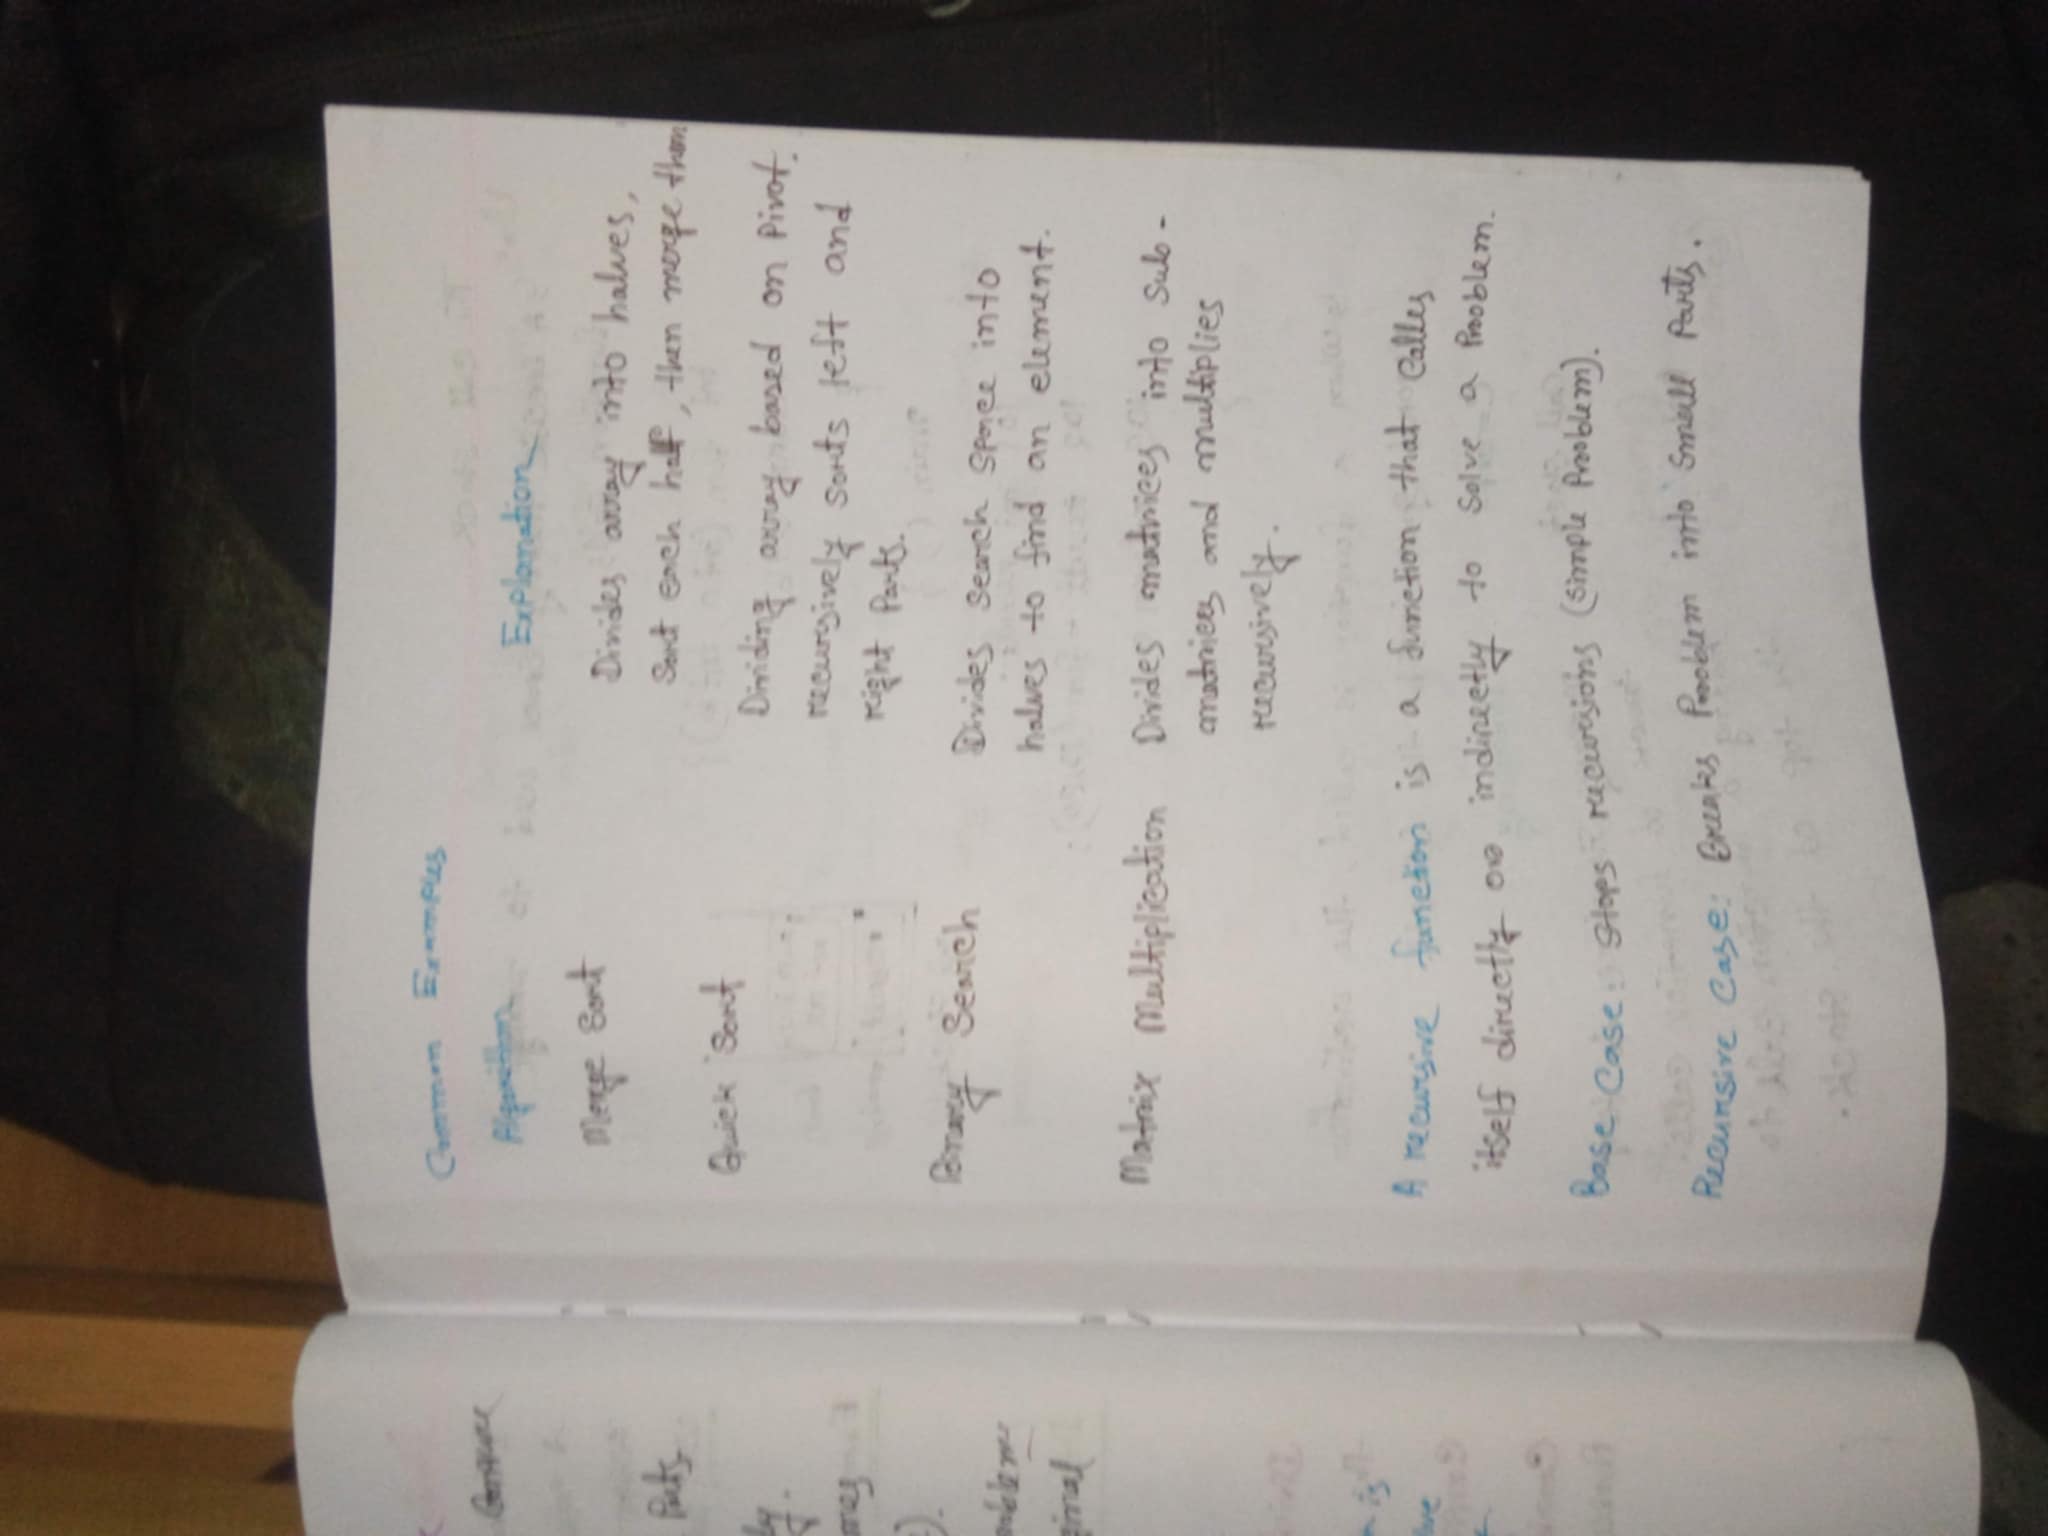 Common Examples
Algorithm Explanation
Merge Sort Divides array into halves,
Sort each half, then merge them
Quick Sort Dividing array based on Pivot.
recursively sorts left and
right Parts.
Binary Search Divides search space into
halves to find an element.
Matrix Multiplication Divides matrices into sub-
matrices and multiplies
recursively.
A recursive function is a function that calles
itself directly or indirectly to solve a Problem.
Base Case: Stops recursions (simple Problem).
Recursive Case: Breaks Problem into small Parts.
Parts